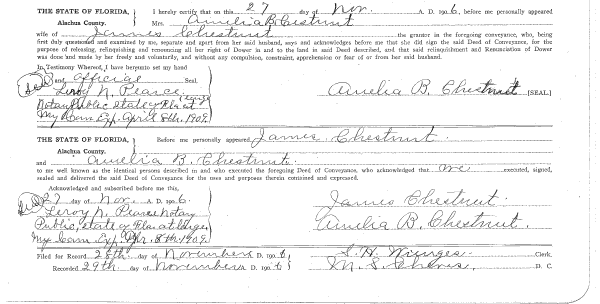 THE STATE OF FLORIDA, I hereby certify that on this 27 day of Nov. A. D. 190 6, before me personally appeared
Alachua County. Mrs. Amelia B Chestnut
wife of James Chestnut the grantor in the foregoing conveyance, who, being
first duly questioned and examined by me, separate and apart from her said husband, says and acknowledges before me that she did sign the said Deed of Conveyance, for the
purpose of releasing, relinquishing and renouncing all her right of Dower in and to the land in said Deed described, and that said relinquishment and Renunciation of Dower
was done and made by her freely and voluntarily, and without any compulsion, constraint, apprehension or fear of or from her said husband.
In Testimony Whereof, I have hereunto set my hand
Seal and official Seal.
Leroy N. Pearce Amelia B. Chestnut [SEAL.]
Notary Public State of Fla. at large
My Com Exp. April 8th 1909.
THE STATE OF FLORIDA, Before me personally appeared James Chestnut
Alachua County.
and Amelia B. Chestnut
to me well known as the identical persons described in and who executed the foregoing Deed of Conveyance, who acknowledged that we executed, signed,
sealed and delivered the said Deed of Conveyance for the uses and purposes therein contained and expressed.
Acknowledged and subscribed before me this,
Seal 27 day of Nov. A. D. 190 6. James Chestnut.
Leroy N. Pearce Notary Amelia B. Chestnut.
Public, State of Fla. at large.
My Com Exp. Apr. 8th 1909.
Filed for Record 28th day of November A. D. 190 6 S. H. Wienges Clerk.
Recorded 29th day of November A. D. 190 6 M. S. D. C.